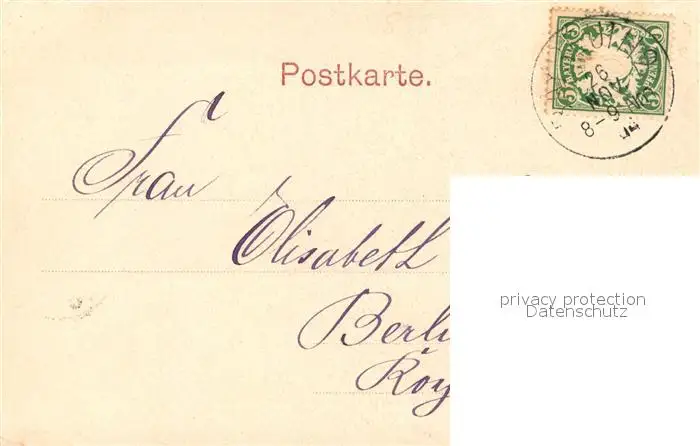 Postkarte.
26
NOV
8-9
Frau
Elisabeth
Berli
privacy protection
Datenschutz